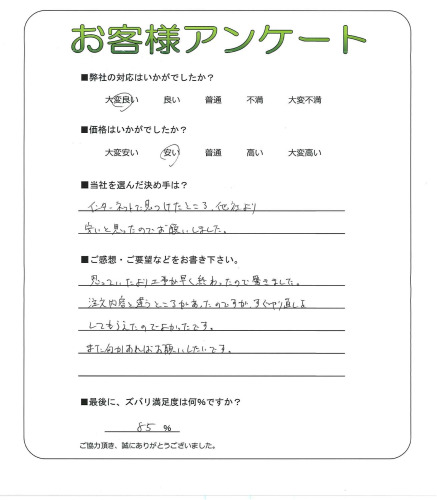 お客様アンケート
■弊社の対応はいかがでしたか？
大変良い 良い 普通 不満 大変不満
■価格はいかがでしたか？
大変安い 安い 普通 高い 大変高い
■当社を選んだ決め手は？
インターネットで見つけたところ、他社より
安いと思ったのでお願いしました。
■ご感想・ご要望などをお書き下さい。
思っていたより工事が早く終わったので驚きました。
注文内容と違うところがあったのですが、すぐやり直しを
してもらえたのでよかったです。
また何かあればお願いしたいです。
■最後に、ズバリ満足度は何%ですか？
85 %
ご協力頂き、誠にありがとうございました。